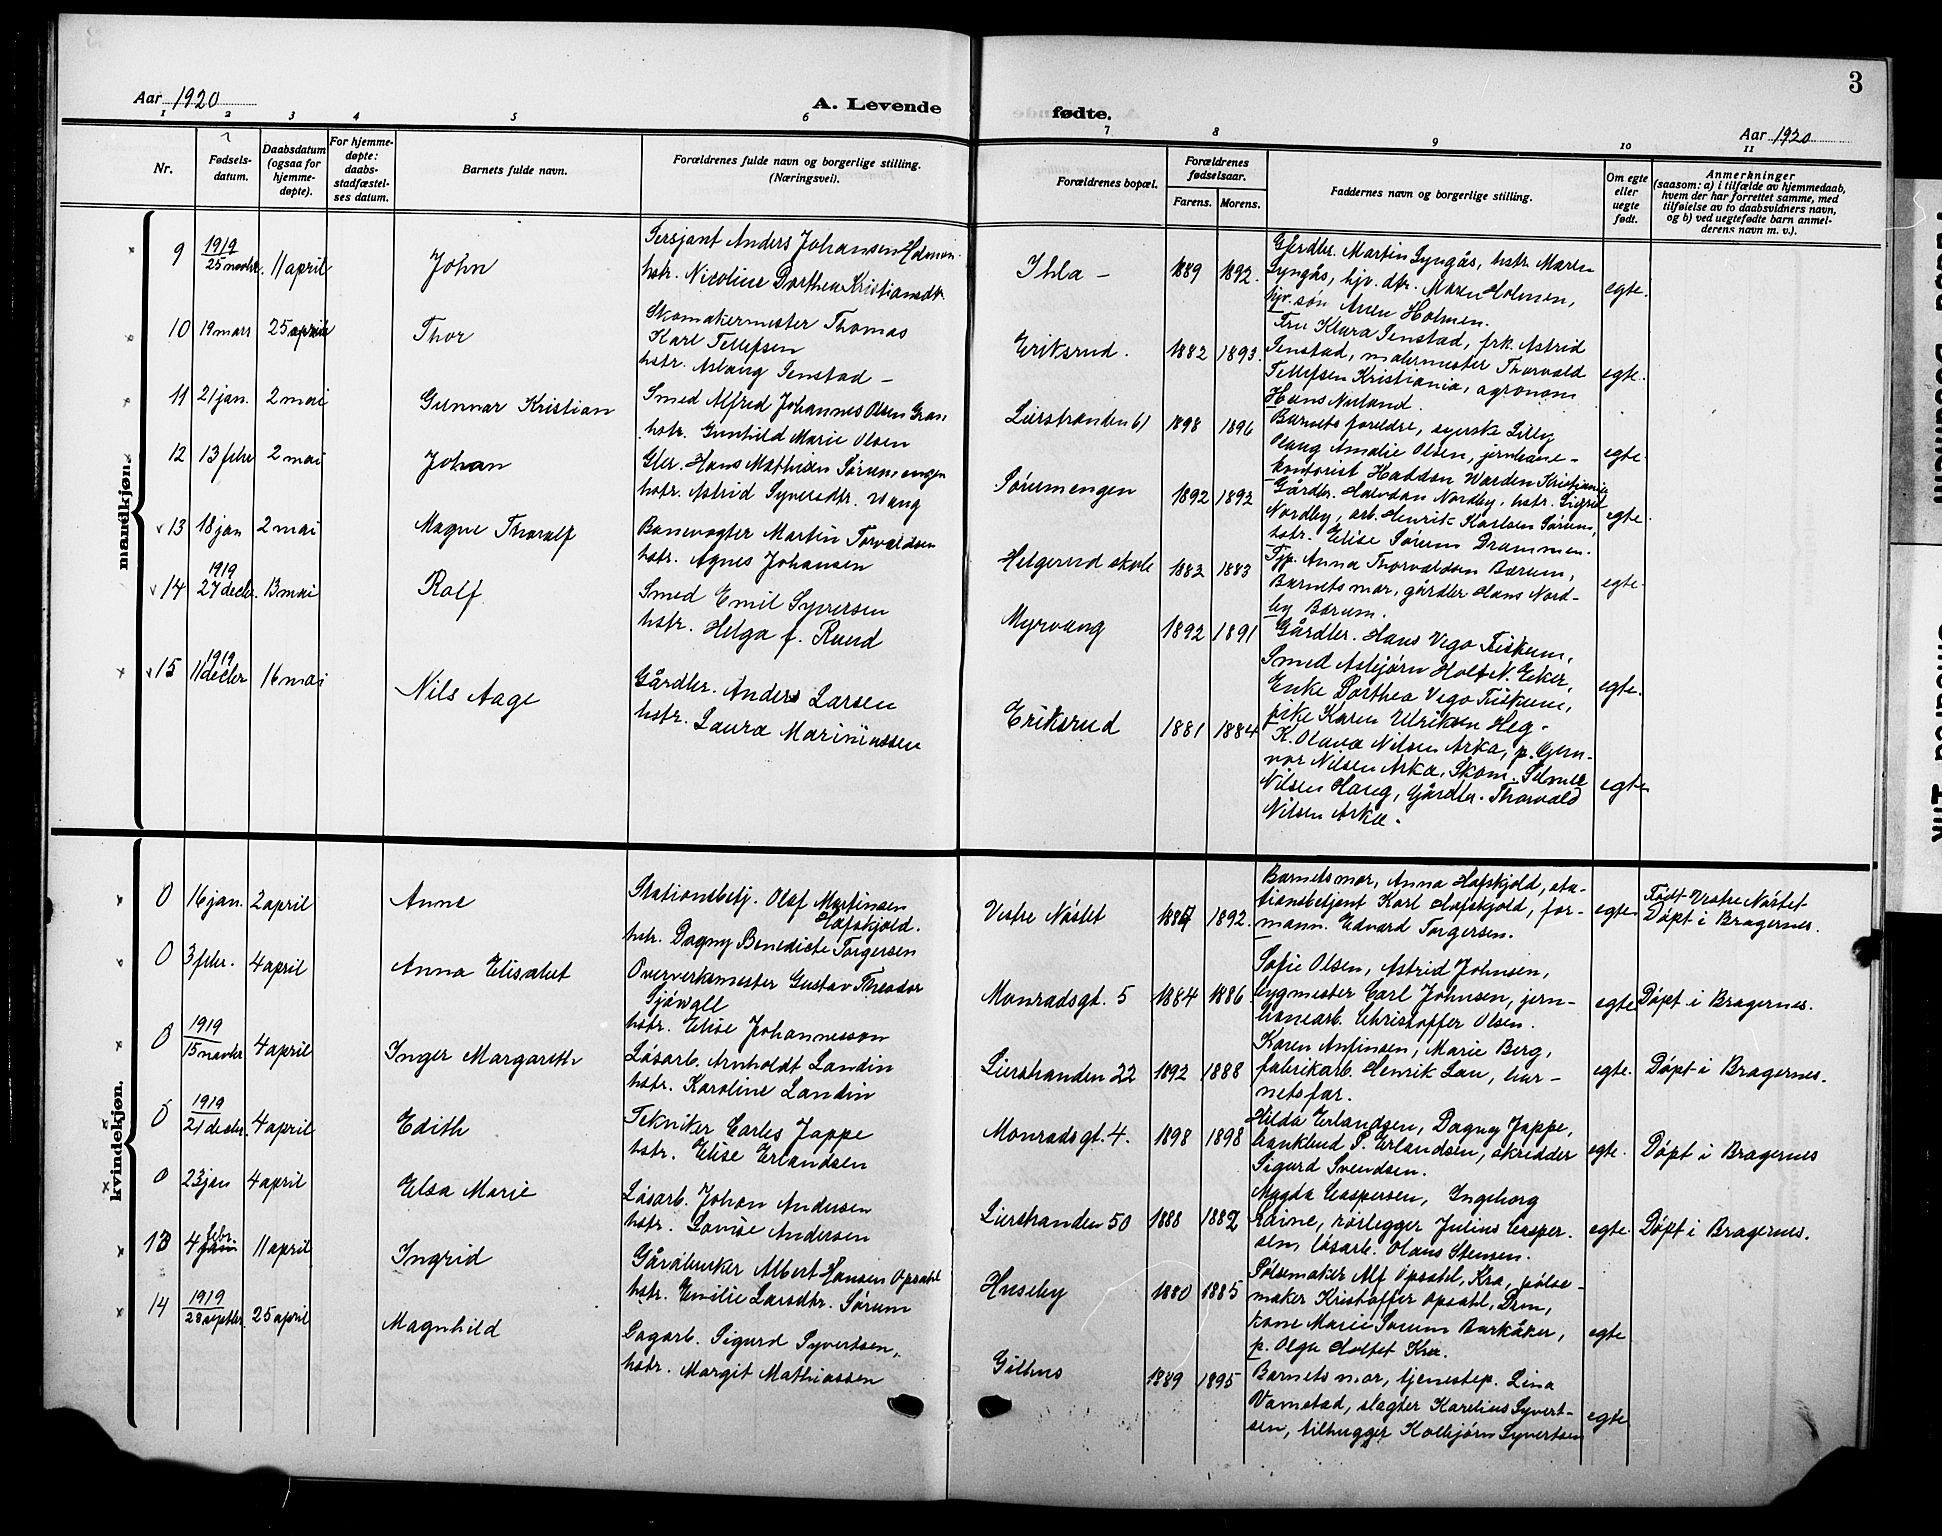 3
Aar 1920
A. Levende
fødte.
Aar 1920
1 2 3 4 5 6 7 8 9 10 11
Nr.
Fødsels-
datum.
Daabsdatum
(ogsaa for
hjemme-
døpte).
For hjemme-
døpte:
daabs-
stadfæstel-
ses datum.
Barnets fulde navn.
Forældrenes fulde navn og borgerlige stilling.
(Næringsvei).
Forældrenes bopæl.
Forældrenes
fødselsaar.
Farens. Morens.
Faddernes navn og borgerlige stilling.
Om egte
eller
uegte
født.
Anmerkninger
(saasom: a) i tilfælde av hjemmedaab,
hvem der har forrettet samme, med
tilføielse av to daabsvidners navn,
og b) ved uegtefødte barn anmel-
derens navn m. v.).
mandkjøn.
9 1919 25 novbr. 11 april John
Sersjant Anders Johansen Holmen
hstr. Nicoline Dorthea Kristiansdtr.
Ihla - 1889 1892.
Gårdbr. Martin Lyngås, hstr. Maren
Lyngås, hjv. dtr. Maren Holmen,
hjv. søn Aren Holmen.
egte.
10 19 mars 25 april Thor
Skomakermester Thomas
Karl Tellefsen
hstr. Aslaug Senstad -
Eriksrud. 1882 1893.
Fru Klara Senstad, frk. Astrid
Senstad, malermester Thorvald
Tellefsen Kristiania, agronom
Hans Nuland.
egte.
11 21 jan. 2 mai Gunnar Kristian
Smed Alfred Johannes Olsen Gran
hstr. Gunhild Marie Olsen
Lierstranden 61 1898 1896
Barnets foreldre, syerske Lilly
Olaug Amalie Olsen, jernbane-
kontorist Haddon Warden Kristiania
egte.
12 13 febr 2 mai Johan
Gbr. Hans Mathisen Sørumsengen
hstr. Astrid Syversdtr. Wang
Sørumengen 1892 1892
Gårdbr. Halvdan Nordby, hstr. Sigrid
Nordby, arb. Henrik Karlsen Sørum,
hstr. Elise Sørum Drammen.
egte.
13 18 jan 2 mai Magne Thoralf
Banevogter Martin Torvaldsen
hstr. Agnes Johansen
Helgerud skole 1882 1883
Tjp. Anna Thorvaldsen Bærum,
Barnets mor, gårdbr Hans Nord-
by Bærum.
egte.
14 1919 27 decbr. 13 mai Rolf
Smed Emil Syversen
hstr. Helga f. Ruud
Myrvang 1892 1891
Gårdbr. Hans Vego Fiskum,
Smed Asbjørn Holt N. Eker,
Enke Dorthea Vego Fiskum,
pike Karen Ulriksen Heg-
egte.
15 1919 11 decbr 16 mai Nils Aage
Gårdbr. Anders Larsen
hstr. Laura Mariniussen
Eriksrud 1881 1884
K. Olava Nilsen Arka, p. Gjern-
vor Nilsen Arka, Skom. Selmer
Nilsen Haug, Gårdbr. Thorvald
Nilsen Arka.
egte
kvindekjøn.
0 16 jan. 2 april Anne
Stationsbetj. Olaf Martinsen
Hofskjold.
hstr. Dagny Benedicte Torgersen
Vestre Nøstet 1887 1892.
Barnets mor, Anna Hofskjold, sta-
tionsbetjent Karl Hofskjold, for-
mann. Edvard Torgersen.
egte
Født Vestre Nøstet
Døpt i Bragernes.
0 3 febr. 4 april Anna Elisabet
Oververksmester Gustav Theodor
Sjöwall
hstr. Elise Johannesson
Monradsgt. 5 1884 1886.
Sofie Olsen, Astrid Johnsen,
bygmester Carl Johnsen, jern-
banearb. Christoffer Olsen.
egte
Døpt i Bragernes.
0 1919 15 novbr 4 april Inger Margareth
Løsarb. Arnholdt Landin
hstr. Karoline Landin
Lierstranden 22 1892 1888
Karen Antinsen, Marie Berg,
fabrikarb. Henrik Lau, bar-
nets far.
egte.
Døpt i Bragernes.
0 1919 21 decbr. 4 april Edith
Tekniker Carles Jappe
hstr. Elise Erlandsen
Monradsgt. 4. 1898 1898
Hilda Erlandsen, Dagny Jappe,
bankbud P. Erlandsen, skredder
Sigurd Svendsen.
egte.
Døpt i Bragernes
0 23 jan 4 april Elsa Marie
Løsarb. Johan Andersen
hstr. Lovise Andersen
Lierstranden 50 1888 1882
Magda Caspersen, Ingeborg
Raine, rørlegger Julius Casper-
sen, løsarb. Olaus Stensen.
egte.
Døpt i Bragernes.
13 4 febr. 11 april Ingrid
Gårdbruker Albert Hansen Opsahl
hstr. Emilie Larsdtr. Sørum
Huseby 1880 1885
Pølsemaker Alf Opsahl, Kra, pølse-
maker Kristoffer Opsahl, Drm,
kone Marie Sørum Barkåker,
p. Olga Holtet Kra.
egte
14 1919 28 septbr. 25 april Magnhild
Sagarb. Sigurd Syvertsen,
hstr. Margit Mathiassen
Gilhus 1889 1895
Barnets mor, tjenestep. Lina
Vamstad, slagter Karelius Syvert-
sen, tilhugger Kolbjørn Syvertsen
egte